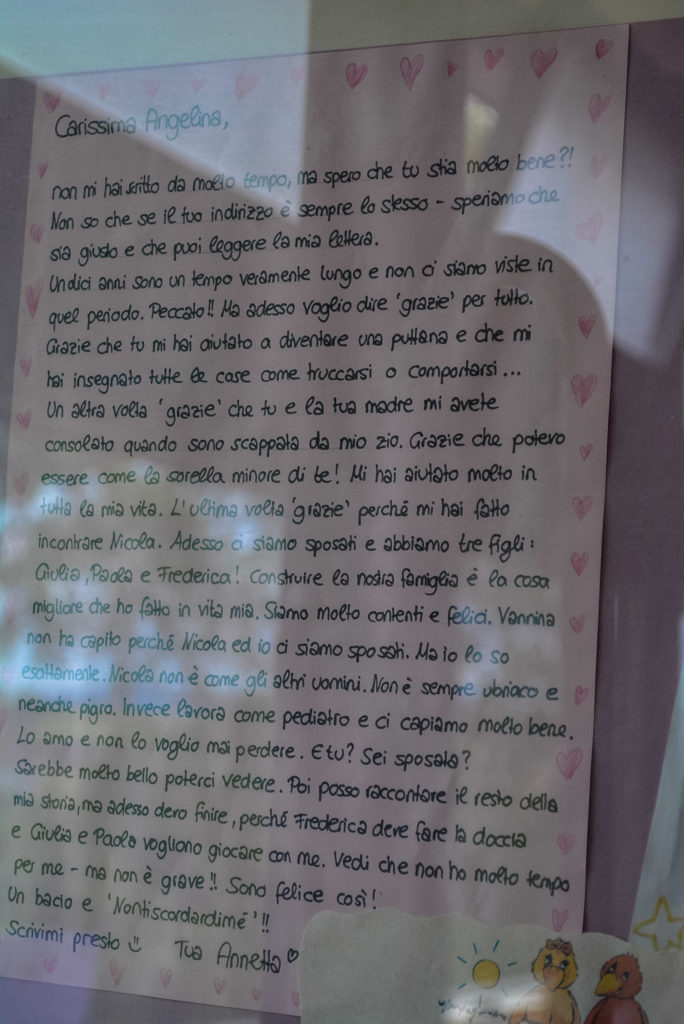 Carissima Angelina,
non mi hai scritto da molto tempo, ma spero che tu stia molto bene?!
Non so che se il tuo indirizzo è sempre lo stesso - speriamo che
sia giusto e che puoi leggere la mia lettera.
Undici anni sono un tempo veramente lungo e non ci siamo viste in
quel periodo. Peccato!! Ma adesso voglio dire 'grazie' per tutto.
Grazie che tu mi hai aiutato a diventare una puttana e che mi
hai insegnato tutte le case come truccarsi o comportarsi...
Un altra volta 'grazie' che tu e la tua madre mi avete
consolato quando sono scappata da mio zio. Grazie che potevo
essere come la sorella minore di te! Mi hai aiutato molto in
tutta la mia vita. L'ultima volta 'grazie' perché mi hai fatto
incontrare Nicola. Adesso ci siamo sposati e abbiamo tre figli:
Giulia, Paola e Frederica! Construire la nostra famiglia è la cosa
migliore che ho fatto in vita mia. Siamo molto contenti e felici. Vannina
non ha capito perché Nicola ed io ci siamo sposati. Ma io lo so
esattamente. Nicola non è come gli altri uomini. Non è sempre ubriaco e
neanche pigro. Invece lavora come pediatro e ci capiamo molto bene.
Lo amo e non lo voglio mai perdere. E tu? Sei sposata?
Sarebbe molto bello poterci vedere. Poi posso raccontare il resto della
mia storia, ma adesso devo finire, perché Frederica deve fare la doccia
e Giulia e Paola vogliono giocare con me. Vedi che non ho molto tempo
per me - ma non è grave!! Sono felice così!
Un bacio e 'Nontiscordardimé'!!
Scrivimi presto Tua Annetta